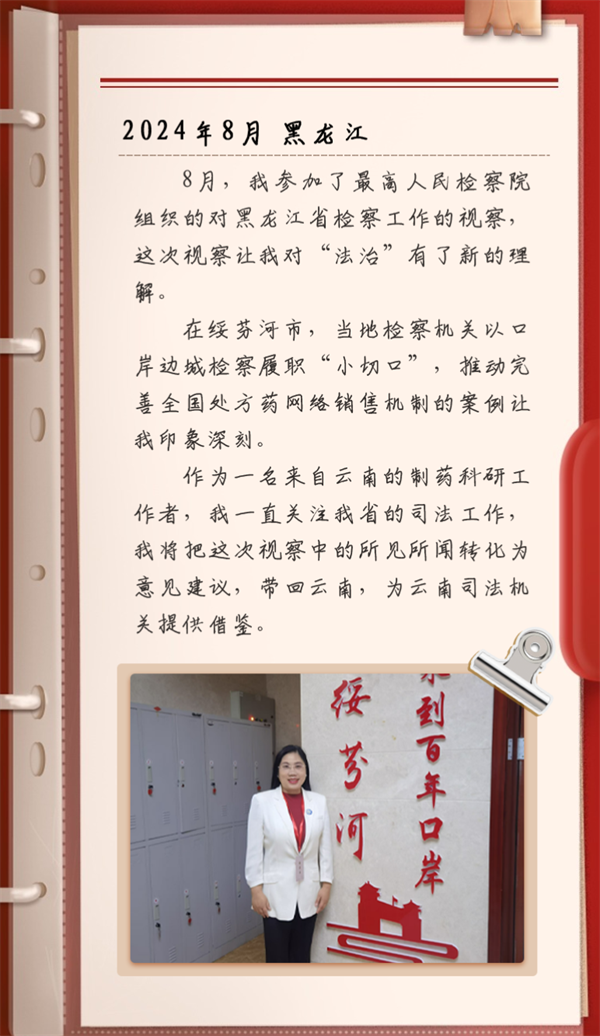 2024年8月 黑龙江
8月，我参加了最高人民检察院
组织的对黑龙江省检察工作的视察，
这次视察让我对“法治”有了新的理
解。
在绥芬河市，当地检察机关以口
岸边城检察履职“小切口”，推动完
善全国处方药网络销售机制的案例让
我印象深刻。
作为一名来自云南的制药科研工
作者，我一直关注我省的司法工作，
我将把这次视察中的所见所闻转化为
意见建议，带回云南，为云南司法机
关提供借鉴。
来到百年口岸
绥芬河